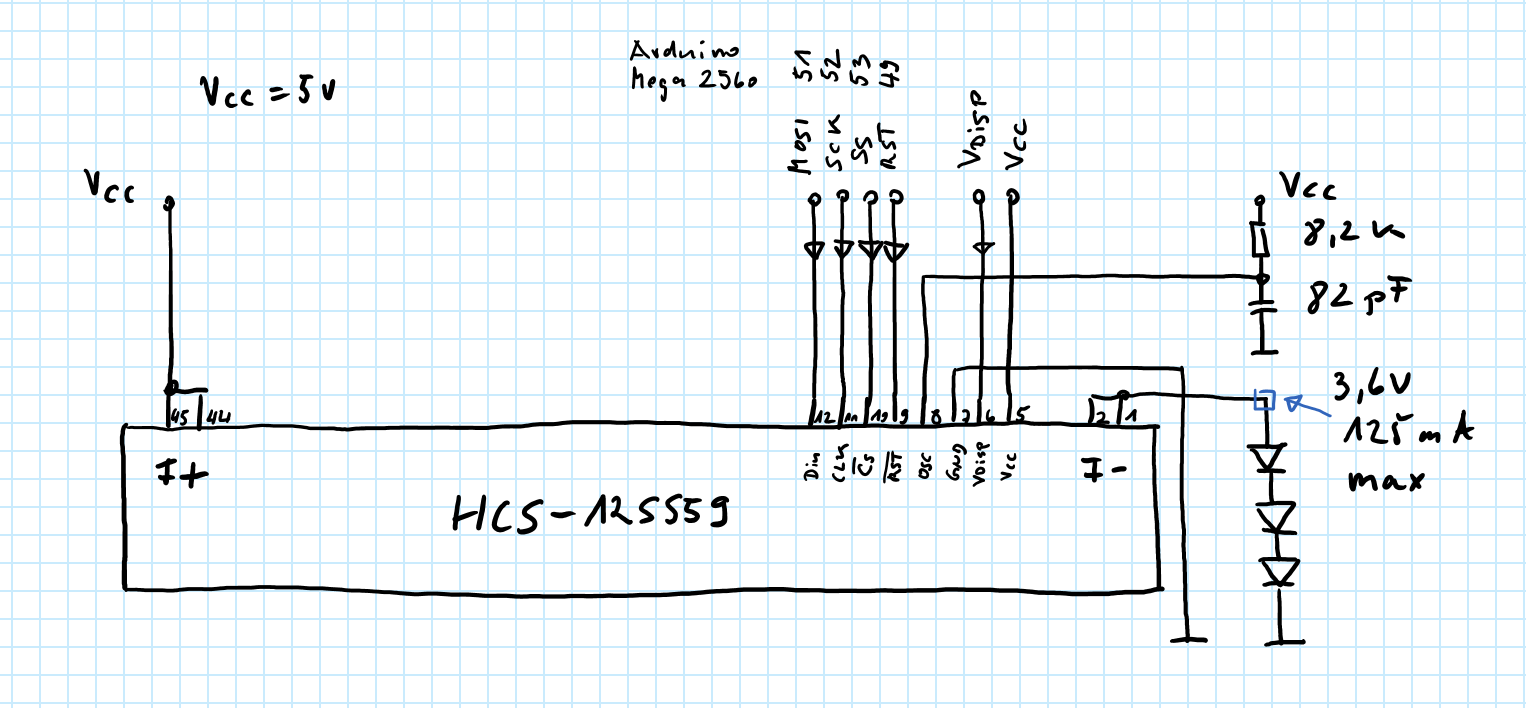 Arduino
Mega 2560
51
52
53
49
Vcc = 5V
MOSI
SCK
SS
RST
VDISP
Vcc
Vcc
Vcc
8,2 k
82 pF
3,6V
125 mA
max
45
44
12
11
10
9
8
7
6
5
2
1
Din
CLK
/CS
/RST
OSC
GND
VDISP
Vcc
F+
F-
HCS-12SS59